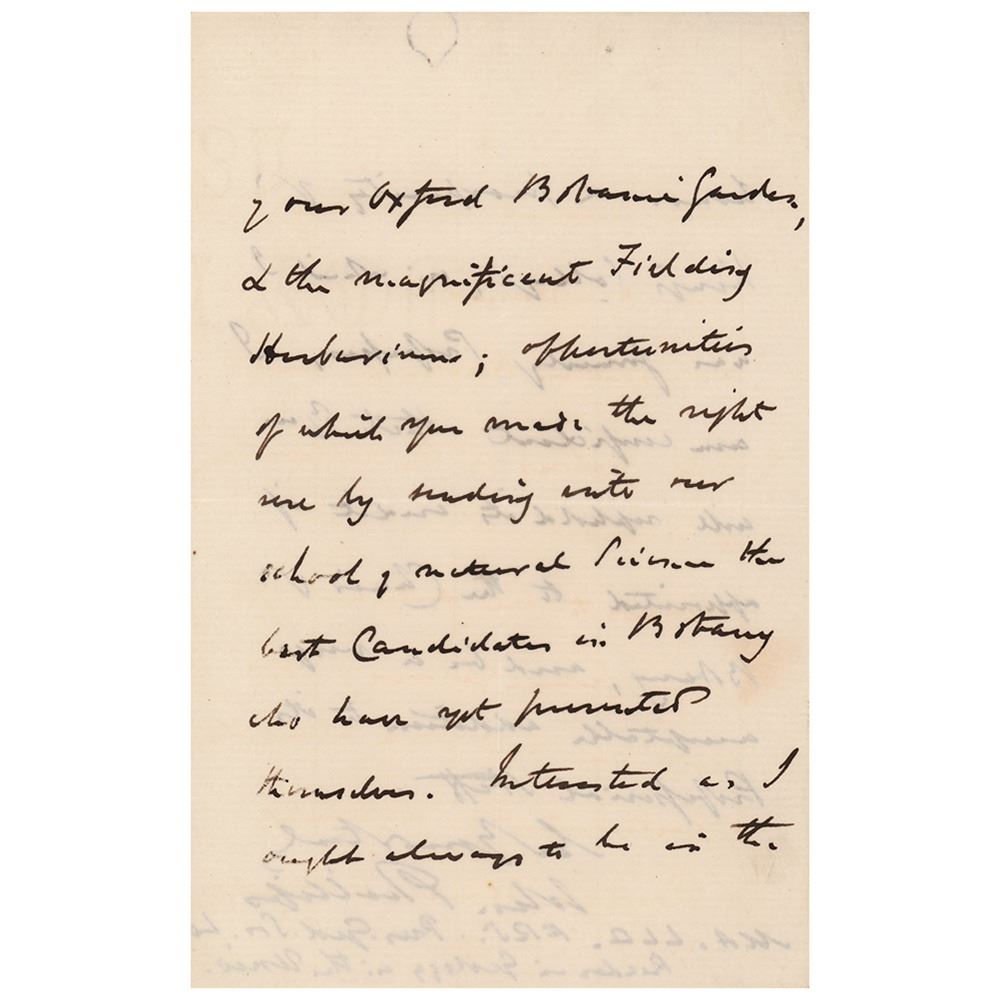 of our Oxford Botanic Garden,
& the magnificent Fielding
Herbarium; opportunities
of which you made the right
use by sending into our
school of natural Science the
best Candidates in Botany
who have yet presented
themselves. Interested as I
ought always to be in the